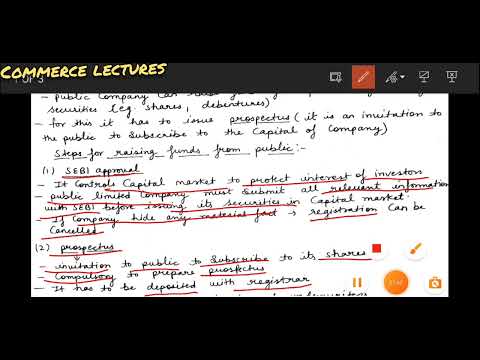 COMMERCE LECTURES
- public Company can
securities (eg. shares, debentures)
- for this it has to issue prospectus (it is an invitation to
the public to subscribe to the Capital of Company)
Steps for raising funds from public:-
(1) SEBI approval
- It Controls Capital market to protect interest of investors
- public limited Company must submit all relevent information
with SEBI before issuing its securities in Capital market.
- If Company hide any material fact → registration can be
Cancelled
(2) prospectus
- invitation to public to subscribe to its shares
- Compulsory to prepare prospectus
- It has to be deposited with registrar